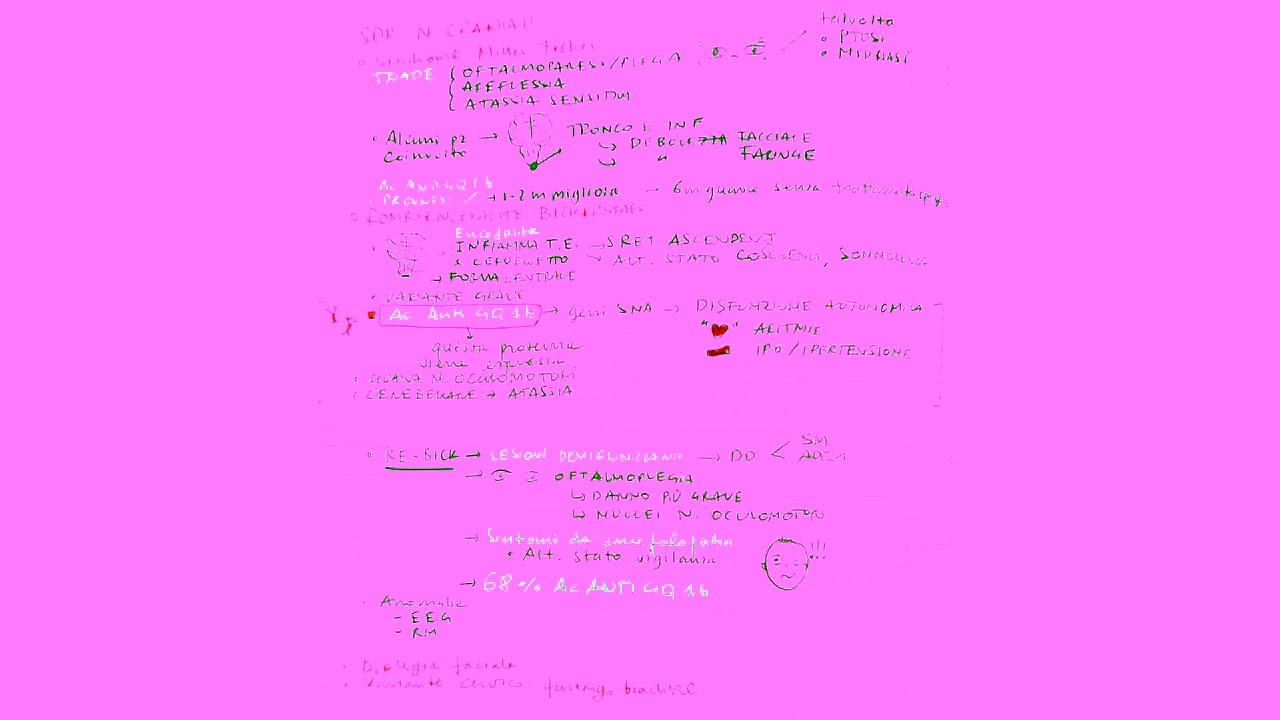 SDR N CRANIALI
Sindrome Miller Fisher
talvolta
PTOSI
MIDRIASI
TRIADE
OFTALMOPARESI/PLEGIA
AREFLESSIA
ATASSIA SENSITIVA
Alcuni pz → TRONCO E INF
coinvolto
DEBOLEZZA FACCIALE
" FARINGE
Ac Anti GQ1b
PROGNOSI → 1-2 m migliora → 6 m guarisce senza trattamento
ROMBOENCEFALITE BICKERSTAFF
Encefalite
INFIAMMA T.E. → S RET ASCENDENT
E CERVELLETTO → ALT. STATO COSCIENZA, SONNOLENZA
→ FORMA CENTRALE
VARIANTE GRAVE
Ac Anti GQ 1b → SNA → DISFUNZIONE AUTONOMICA
" " ARITMIE
IPO/IPERTENSIONE
questa proteina
viene espressa
GUAINA N. OCULOMOTORI
→ ATASSIA
RE-BICK → LESIONI DEMIELINIZZANTI → DD < SM
ADEM
→ OFTALMOPLEGIA
↳ DANNO PIÙ GRAVE
↳ NUCLEI N. OCULOMOTORI
→ Sintomi da encefalopatia
Alt. stato vigilanza
!!!
→ 68 % Ac ANTI GQ 1b
Anomalie
- EEG
- RM
Diplegia faciale
Variante cervico-faringo brachiale